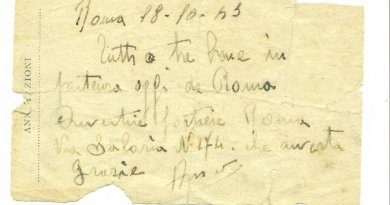 Roma 18-10-43
Tutti a tre bene in
partenza oggi da Roma
Avvertire portiere Roma
Via Salaria N. 174. che avverta
Grazie